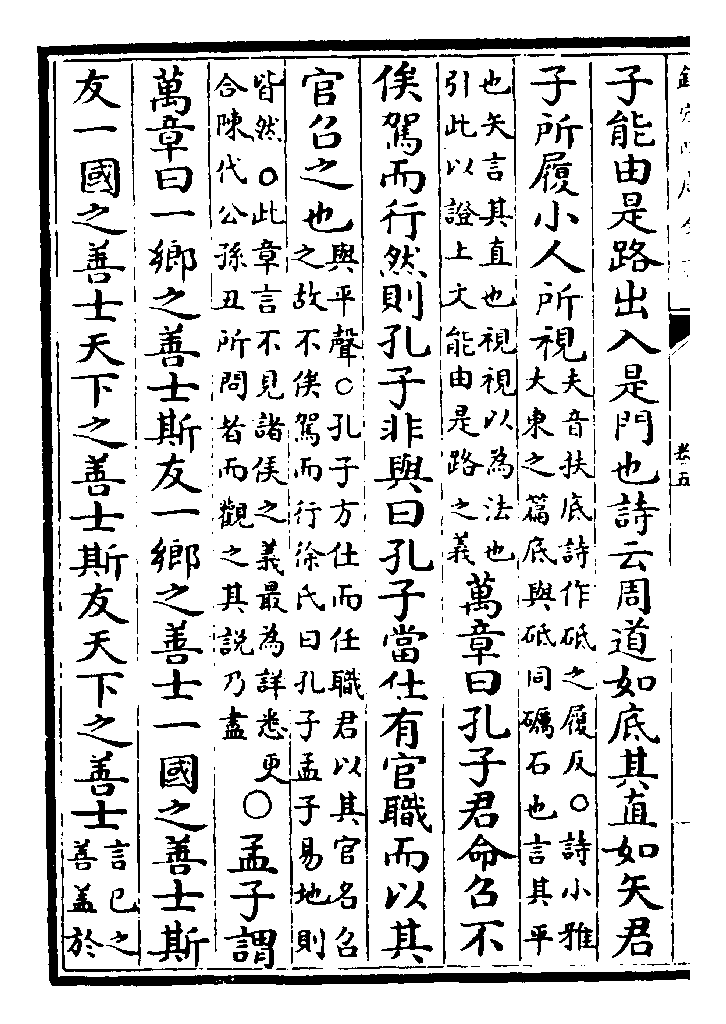 卷五
子能由是路出入是門也詩云周道如底其直如矢君
子所履小人所視
夫音扶底詩作砥之履反○詩小雅
大東之篇底與砥同礪石也言其平
也矢言其直也視視以為法也
引此以證上文能由是路之義
萬章曰孔子君命召不
俟駕而行然則孔子非與曰孔子當仕有官職而以其
官召之也
與平聲○孔子方仕而任職君以其官名召
之故不俟駕而行徐氏曰孔子孟子易地則
皆然○此章言不見諸侯之義最為詳悉更
合陳代公孫丑所問者而觀之其說乃盡
○孟子謂
萬章曰一鄉之善士斯友一鄉之善士一國之善士斯
友一國之善士天下之善士斯友天下之善士
言已之
善盖於